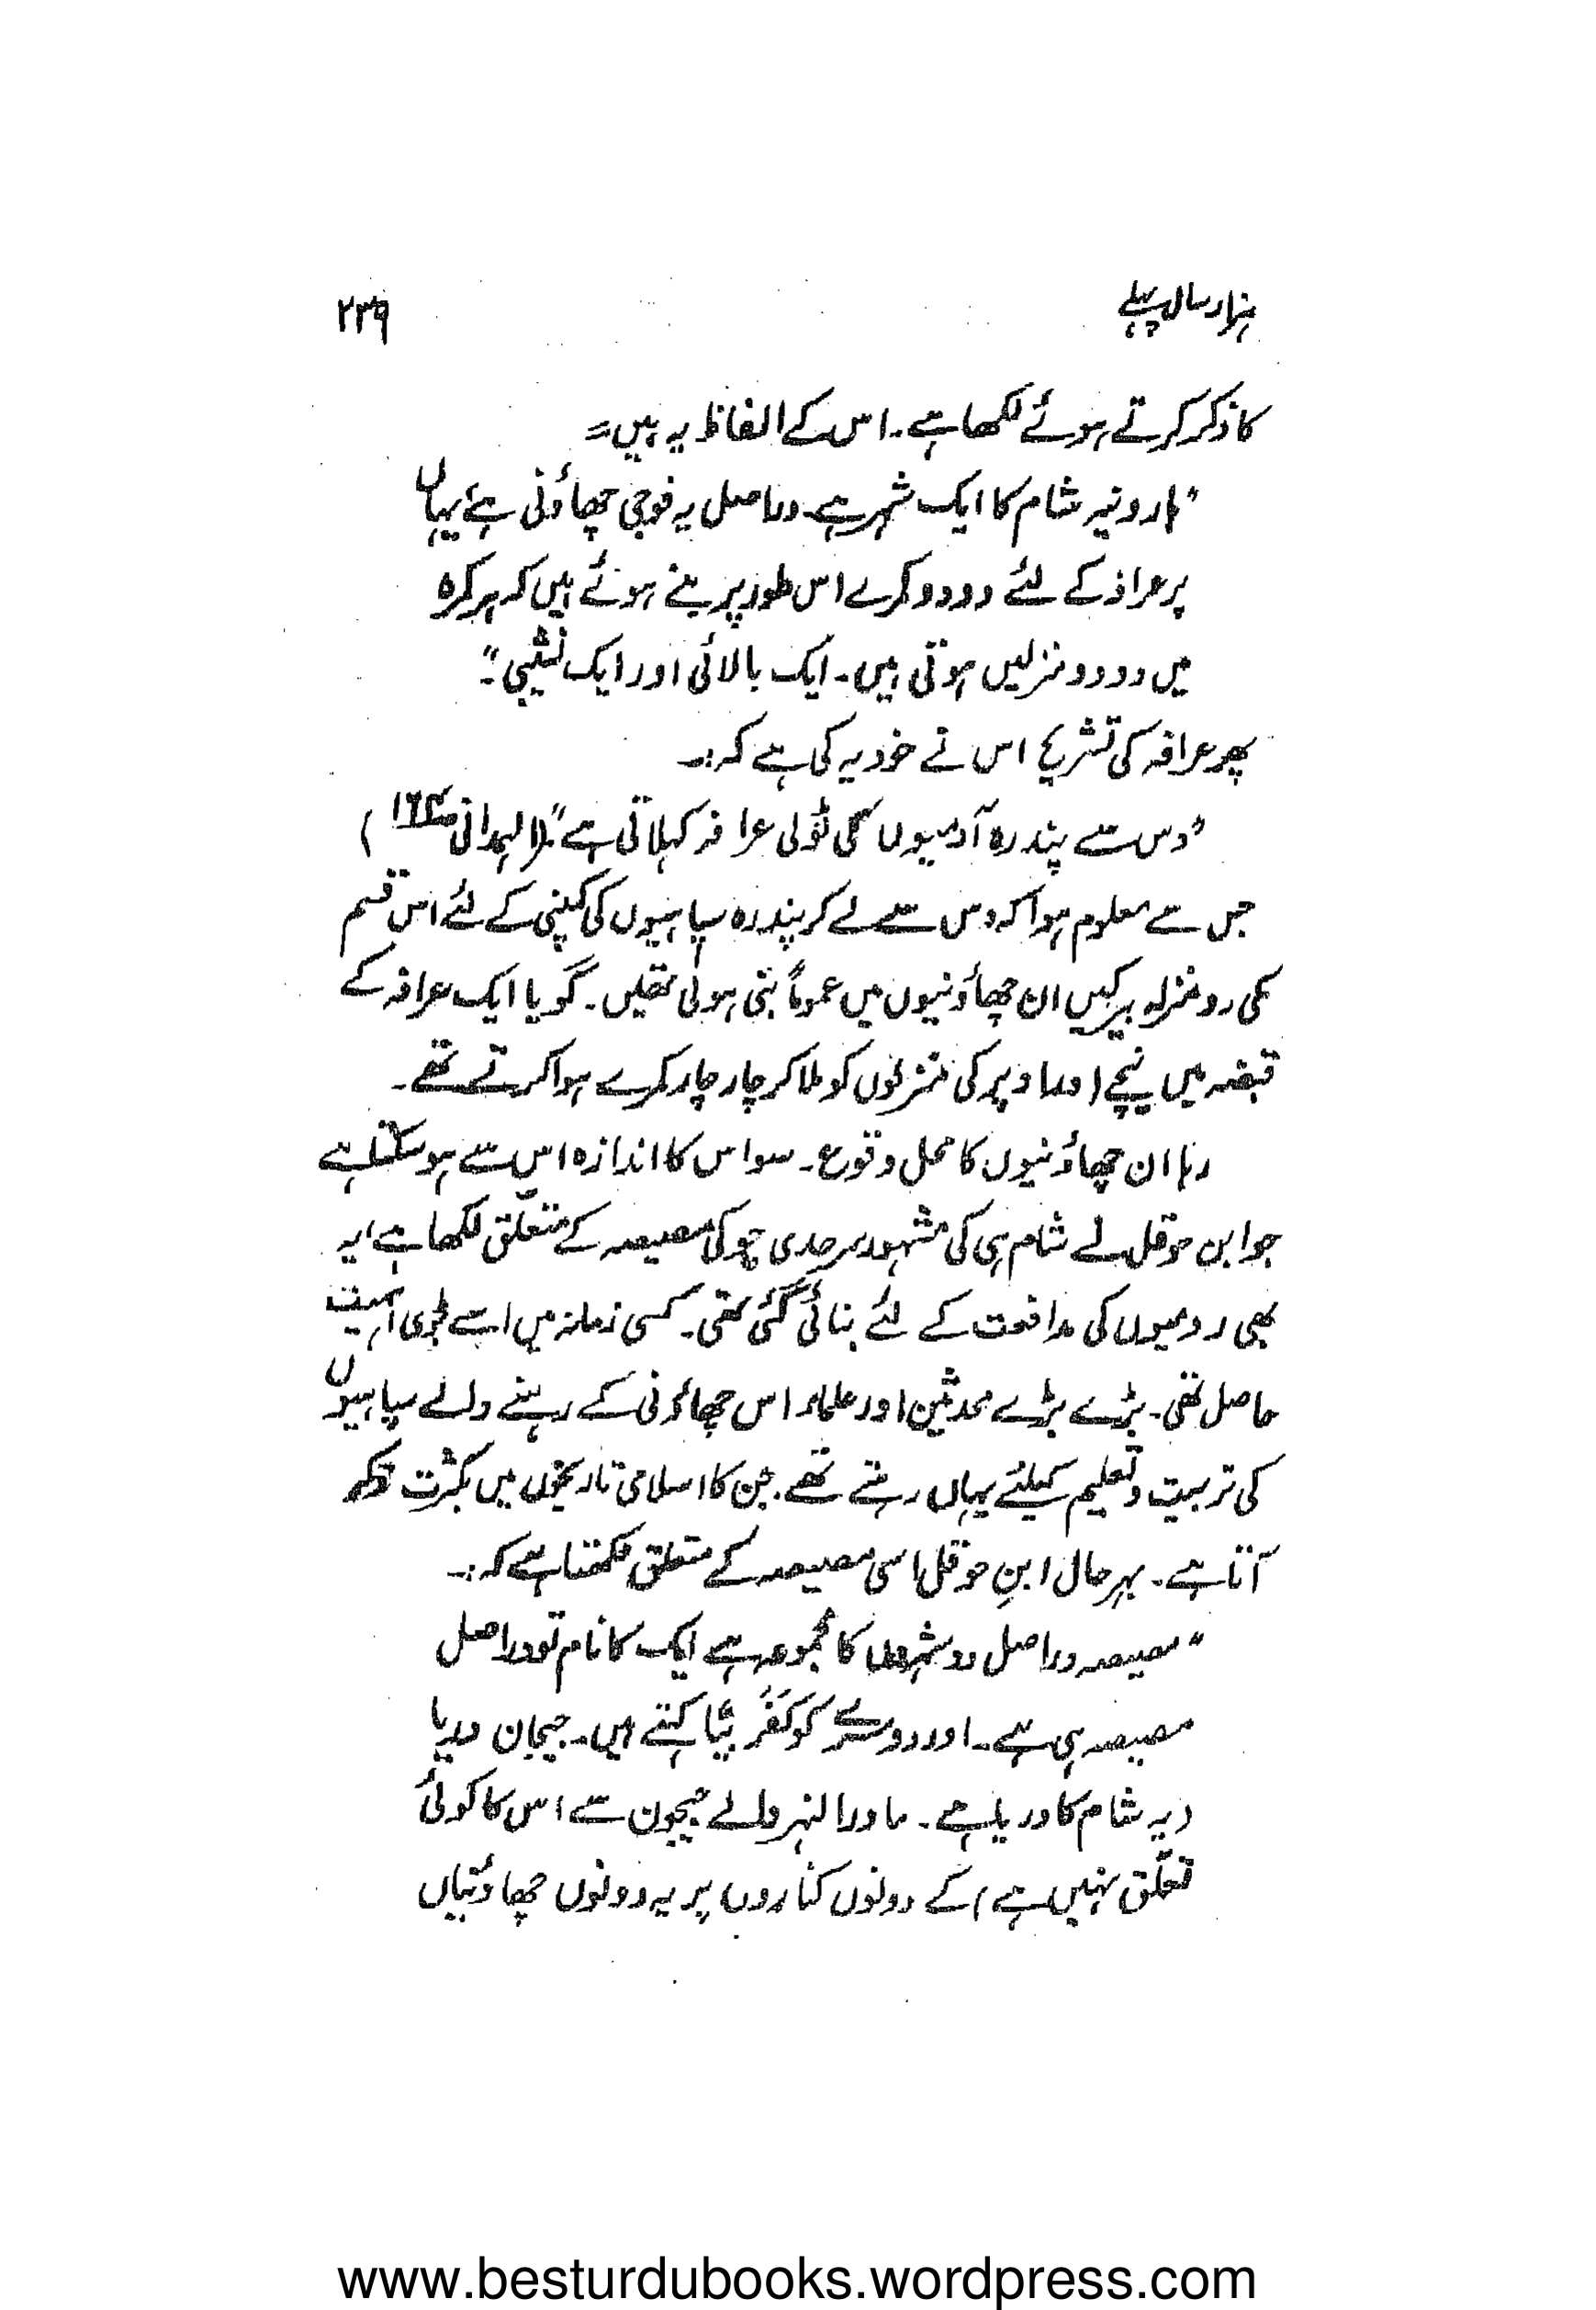 ہزار سال پہلے
۲۳۹
کا ذکر کرتے ہوئے لکھا ہے۔ اس کے الفاظ یہ ہیں =
"ہارونیہ شام کا ایک شہر ہے۔ دراصل یہ فوجی چھاؤنی ہے یہاں
پر عرافہ کے لئے دو دو کمرے اس طور پر بنے ہوئے ہیں کہ ہر کمرہ
میں دو دو منزلیں ہوتی ہیں۔ ایک بالائی اور ایک نشیبی"۔
پھر عرافہ کی تشریح اس نے خود یہ کی ہے کہ :۔
"دس سے پندرہ آدمیوں کی ٹولی عرافہ کہلاتی ہے"۔ (الہمدانی ص۱۶۳)
جس سے معلوم ہوا کہ دس سے لے کر پندرہ سپاہیوں کی کمپنی کے لئے اس قسم
کی دو منزلہ بیرکیں ان چھاؤنیوں میں عموماً بنی ہوئی تھیں۔ گویا ایک عرافہ کے
قبضہ میں نیچے اور اوپر کی منزلوں کو ملا کر چار چار کمرے ہوا کرتے تھے۔
رہا ان چھاؤنیوں کا محل وقوع۔ سو اس کا اندازہ اس سے ہو سکتا ہے
جو ابن حوقل نے شام ہی کی مشہور سرحدی چوکی مصیصہ کے متعلق لکھا ہے، یہ
بھی رومیوں کی مدافعت کے لئے بنائی گئی تھی۔ کسی زمانہ میں اسے بڑی اہمیت
حاصل تھی۔ بڑے بڑے محدثین اور علماء اس چھاؤنی کے رہنے والے سپاہیوں
کی تربیت و تعلیم کیلئے یہاں رہتے تھے۔ جن کا اسلامی تاریخوں میں بکثرت ذکر
آتا ہے۔ بہر حال ابنِ حوقل اسی مصیصہ کے متعلق لکھتا ہے کہ :۔
"مصیصہ دراصل دو شہروں کا مجموعہ ہے ایک کا نام تو دراصل
مصیصہ ہی ہے۔ اور دوسرے کو کَفَرْ بَیّا کہتے ہیں۔ جیحان دریا
(یہ شام کا دریا ہے۔ ماوراء النہر والے جیحون سے اس کا کوئی
تعلّق نہیں ہے) کے دونوں کناروں پر یہ دونوں چھاؤنیاں
www.besturdubooks.wordpress.com